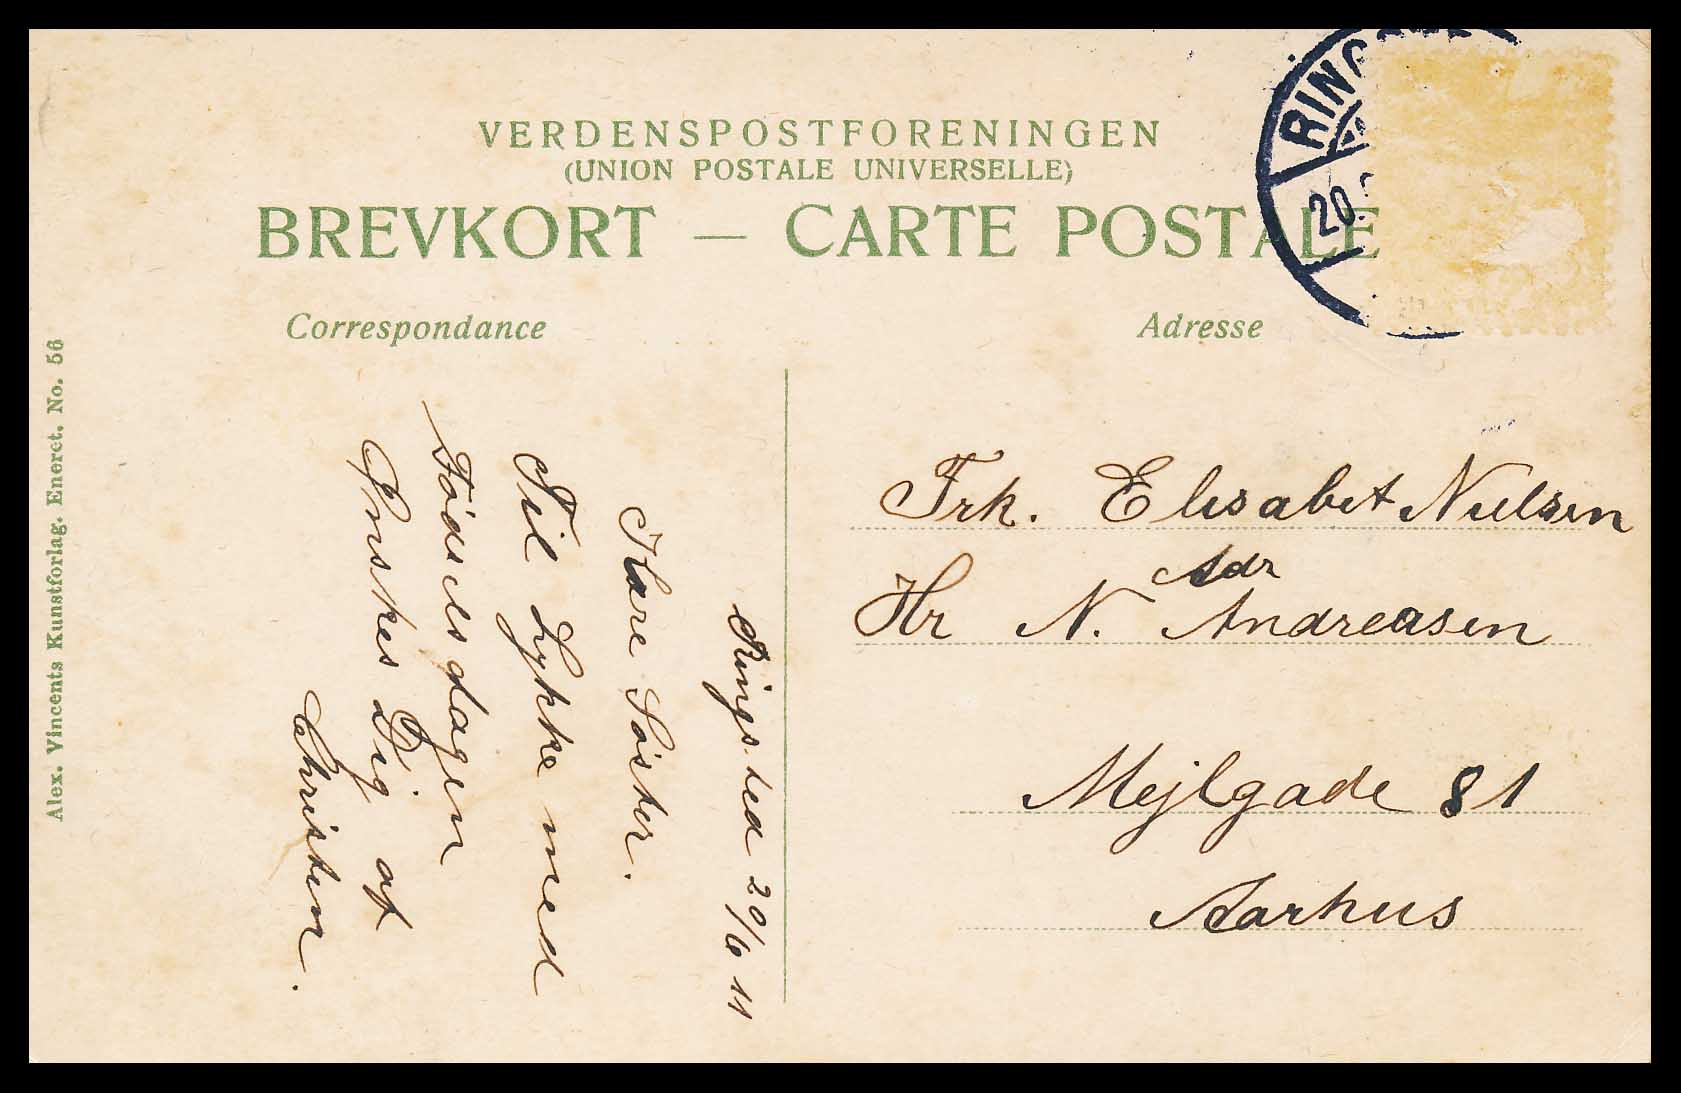 VERDENSPOSTFORENINGEN
(UNION POSTALE UNIVERSELLE)
BREVKORT — CARTE POSTALE
Correspondance
Adresse
RINGS
20.
Alex. Vincents Kunstforlag. Eneret. No. 56
Ringsted 20/6 11
Kære Søster.
Til Lykke med
Fødselsdagen
Ønskes Dig af
Christen.
Frk. Elisabet Nielsen
Adr
Hr N. Andreasen
Mejlgade 81
Aarhus